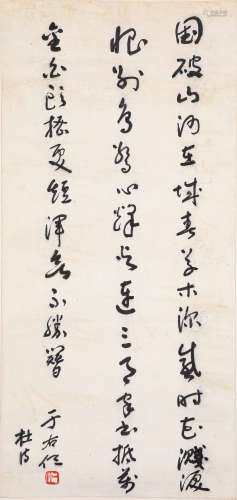 國破山河在城春草木深感時花濺淚
恨別鳥驚心烽火連三月家書抵萬
金白頭搔更短渾欲不勝簪
于右任
杜詩